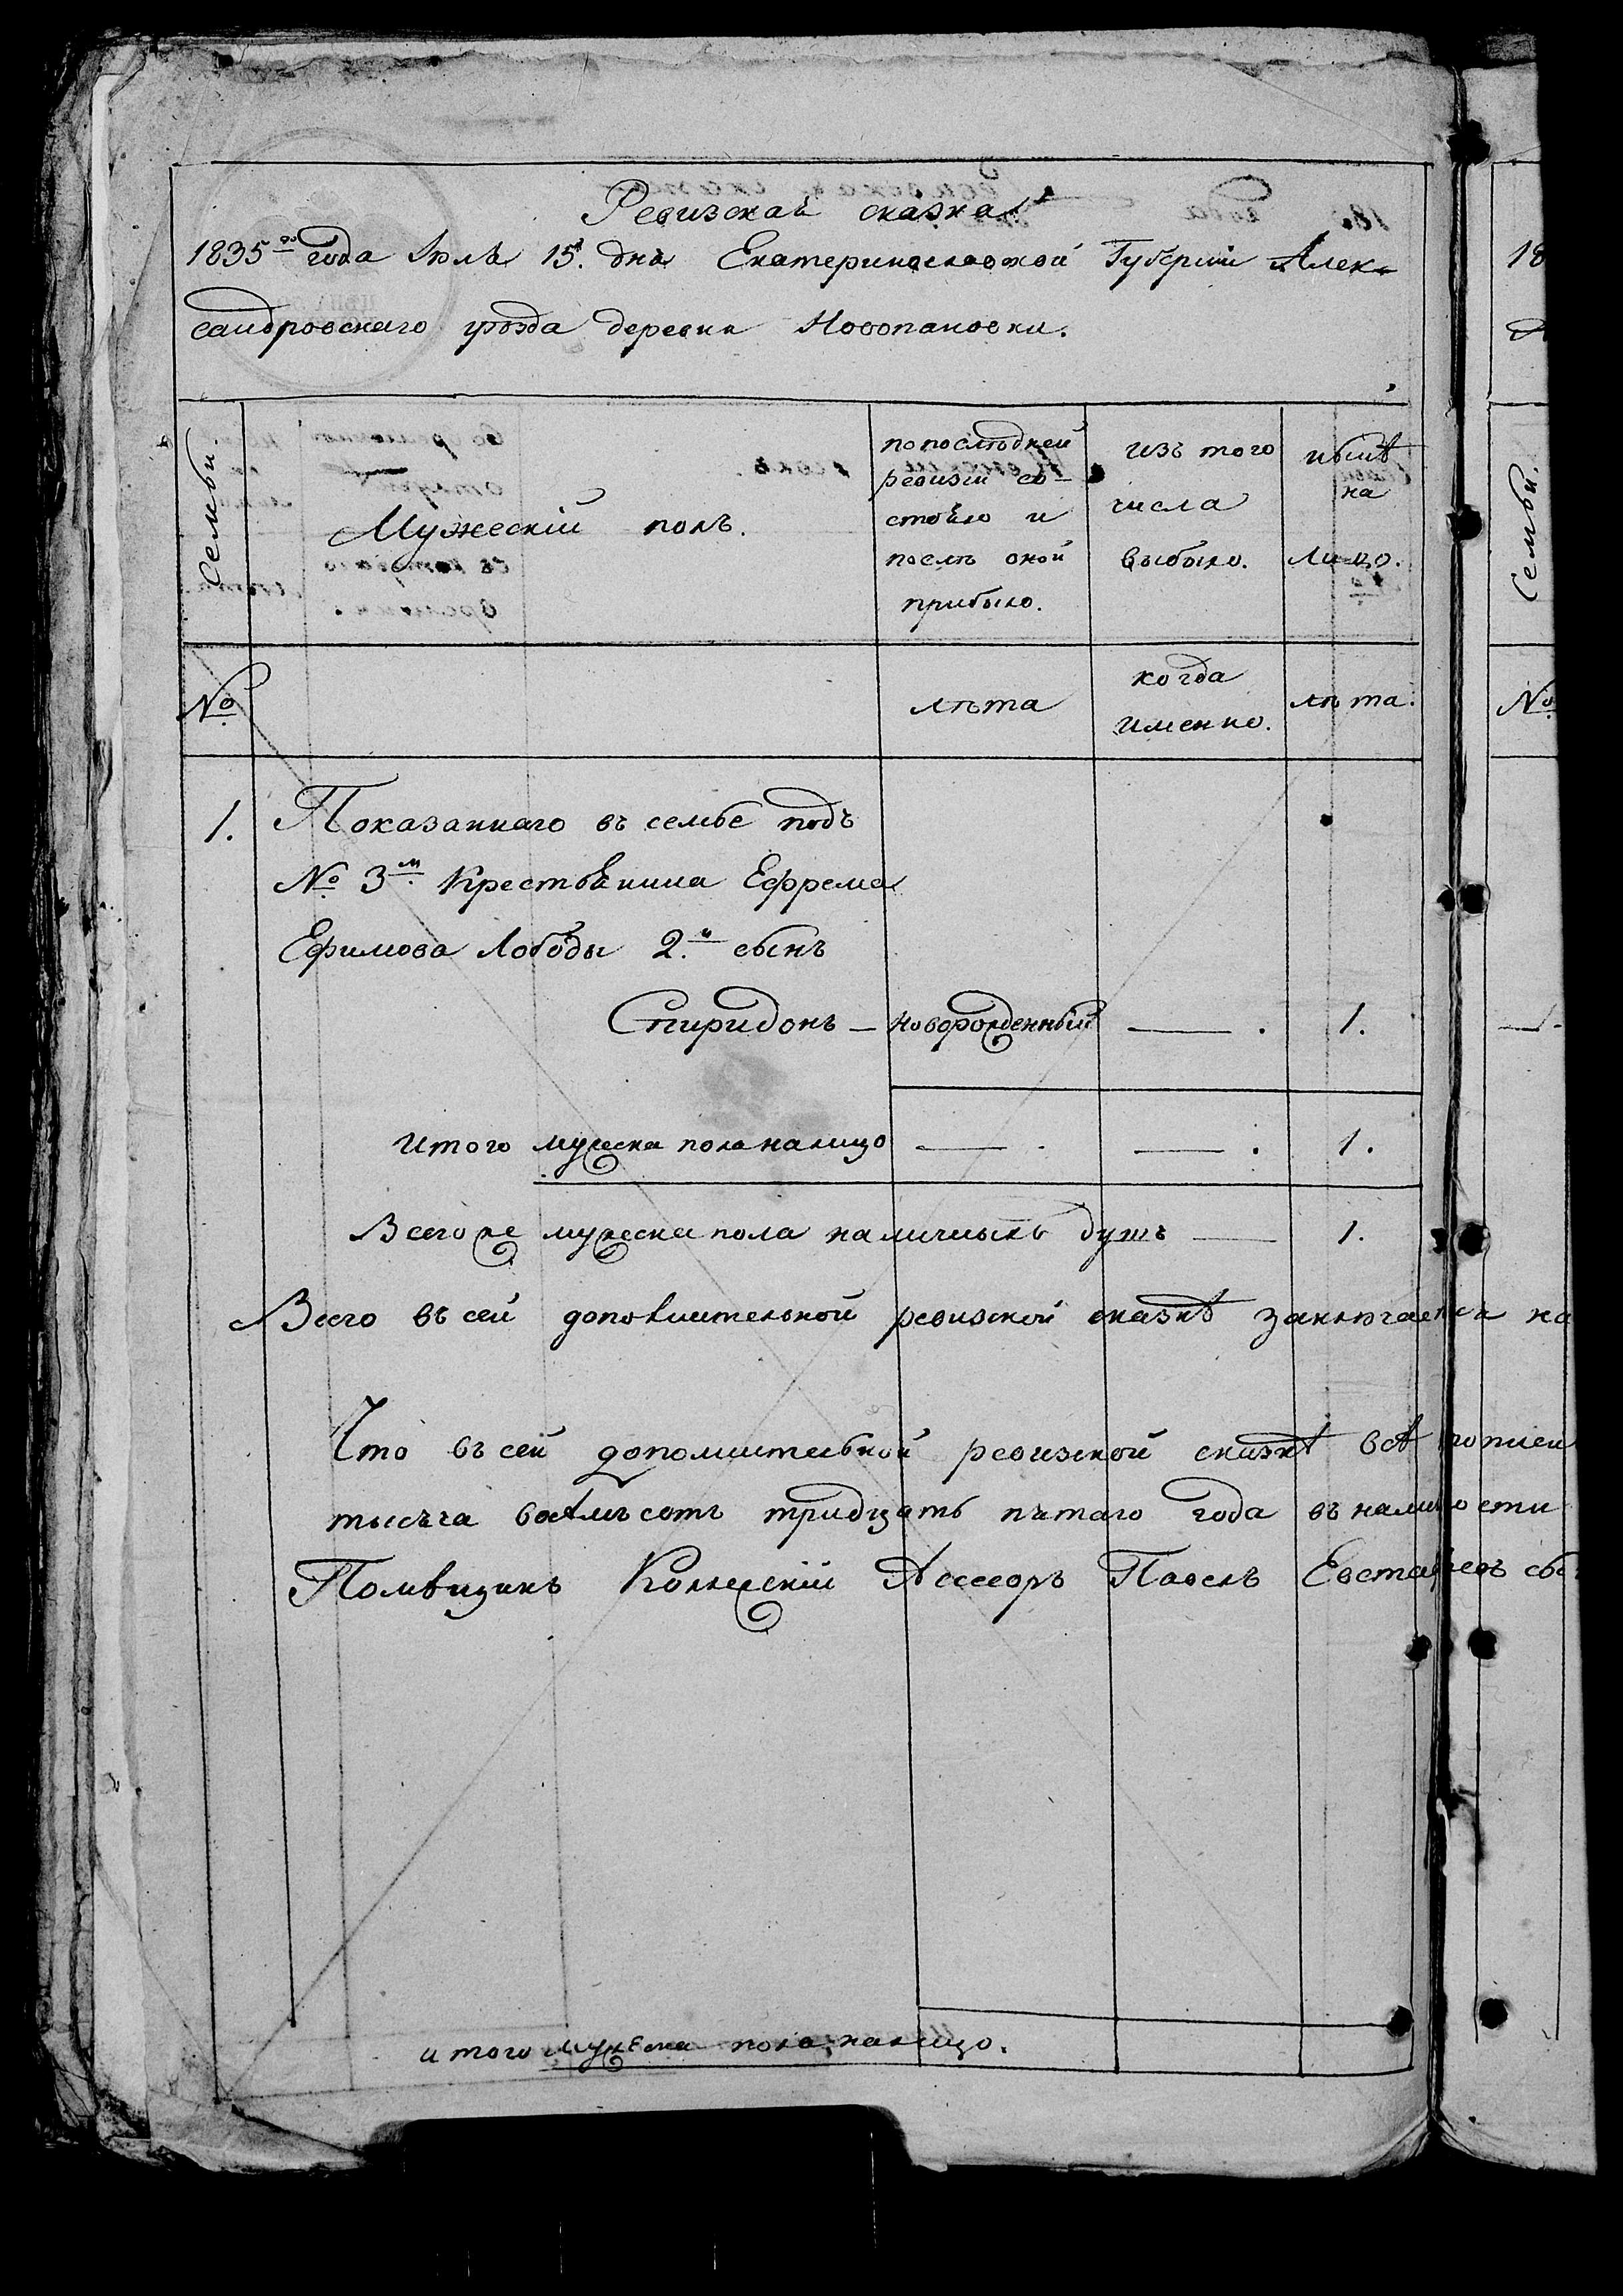 Ревизская сказка
1835го года Июля 15. дня Екатеринославской Губернiи Алек-
сандровскаго уѣзда деревни Новопановки.
Семьи.
Мужескiй полъ.
по послѣдней
ревизiи со-
стояло и
послѣ оной
прибыло.
изъ того
числа
выбыло.
нынѣ
на
лицо.
№
лѣта
когда
именно.
лѣта.
1. Показаннаго въ семье подъ
№ 3м Крестьянина Ефрема
Ефимова Лободы 2.й сынъ
Спиридонъ — новорожденный — . 1.
итого мужеска пола налицо — . — . 1.
Всего же мужеска пола наличныхъ душъ — 1.
Всего въ сей дополнительной ревизской сказкѣ заключается на
Что въ сей дополнительной ревизской сказкѣ всѣ
тысяча восѣмъ сотъ тридцать пятаго года въ наличности
Помѣщикъ Коллежскiй Асессоръ Павелъ Евстафьевъ
итого мужеска пола налицо.
18
Семьи.
№